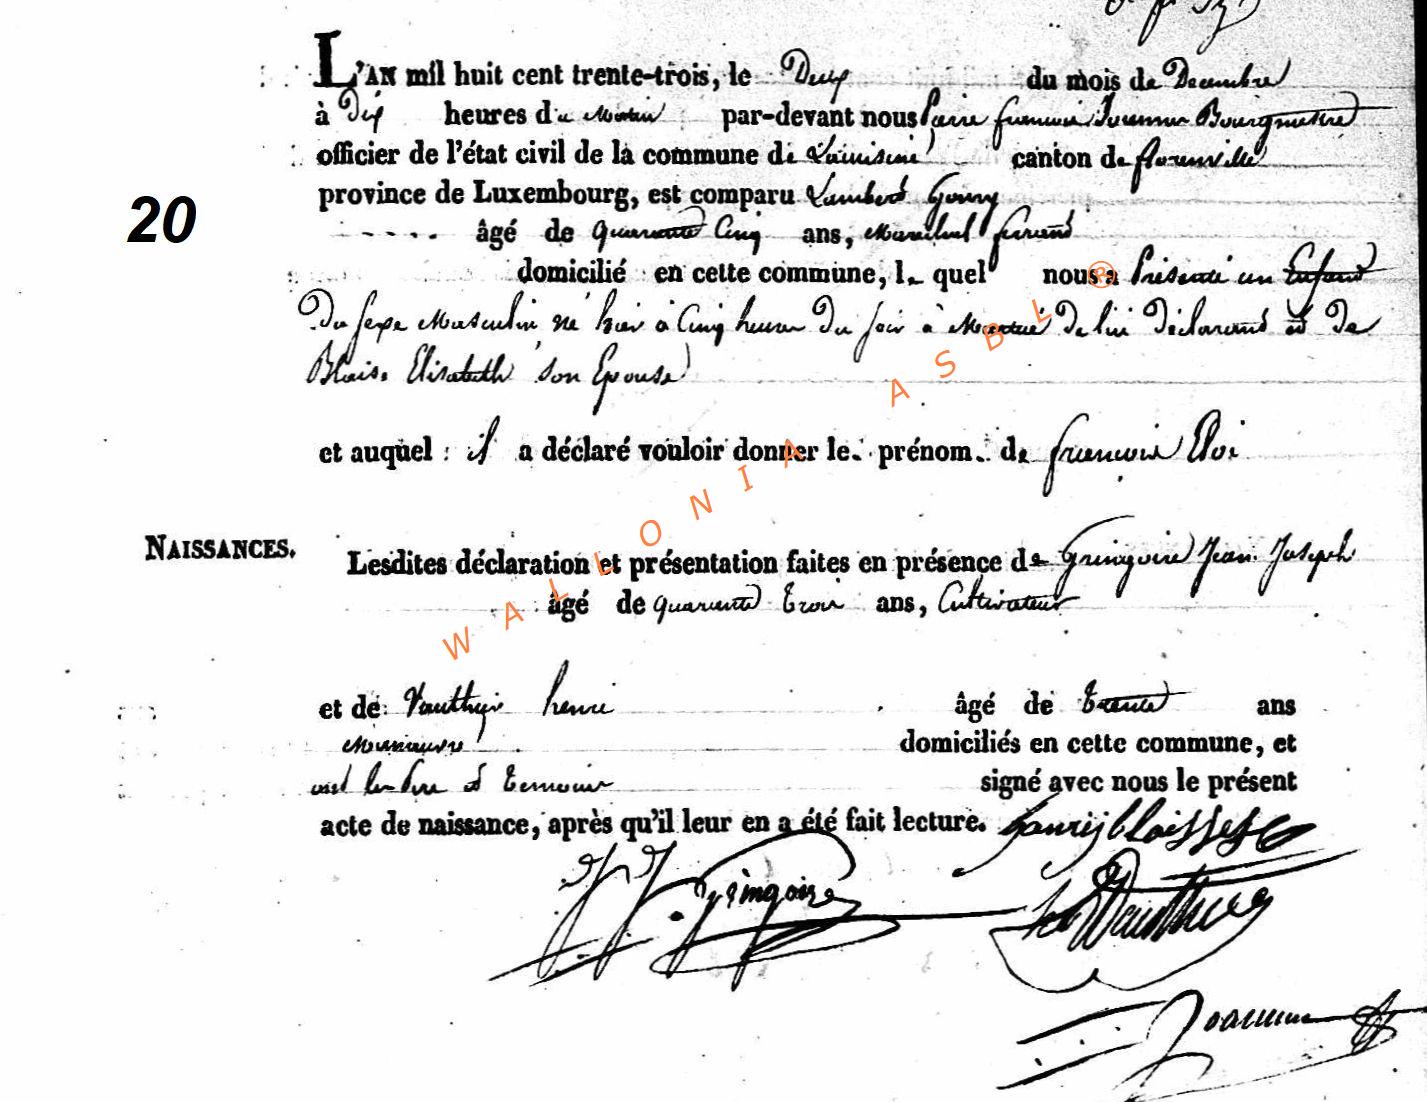 L'AN mil huit cent trente-trois, le Deux du mois de Decembre
à Dix heures du Matin par-devant nous Pierre francois Joannes Bourgmestre
officier de l'état civil de la commune de canton de florenville
province de Luxembourg, est comparu Lambert Goury
20
âgé de quarante Cinq ans, Marechal ferrant
domicilié en cette commune, le quel nous a Présenté un Enfant
Du sexe Masculin né hier à Cinq heures Du soir à Martué De lui Déclarant et De
Blaise Elisabeth son Epouse
et auquel il a déclaré vouloir donner le prénom de francois Eloi
NAISSANCES.
Lesdites déclaration et présentation faites en présence de Gringoire Jean Joseph
âgé de quarante Trois ans, Cultivateur
et de Vauthier henri âgé de Trente ans
Manœuvre domiciliés en cette commune, et
ont les Pere et Temoins signé avec nous le présent
acte de naissance, après qu'il leur en a été fait lecture.
J J Gringoire
Joannes
WALLONIA ASBL ®